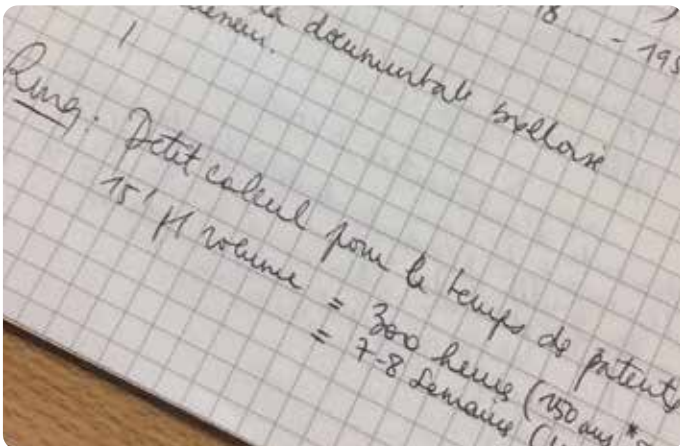 la documentale ixelloise
18 - - - - 195
Rmq: Petit calcul pour le temps de patente
15' pr volume = 300 heures (150 ans*
= 7-8 semaines (